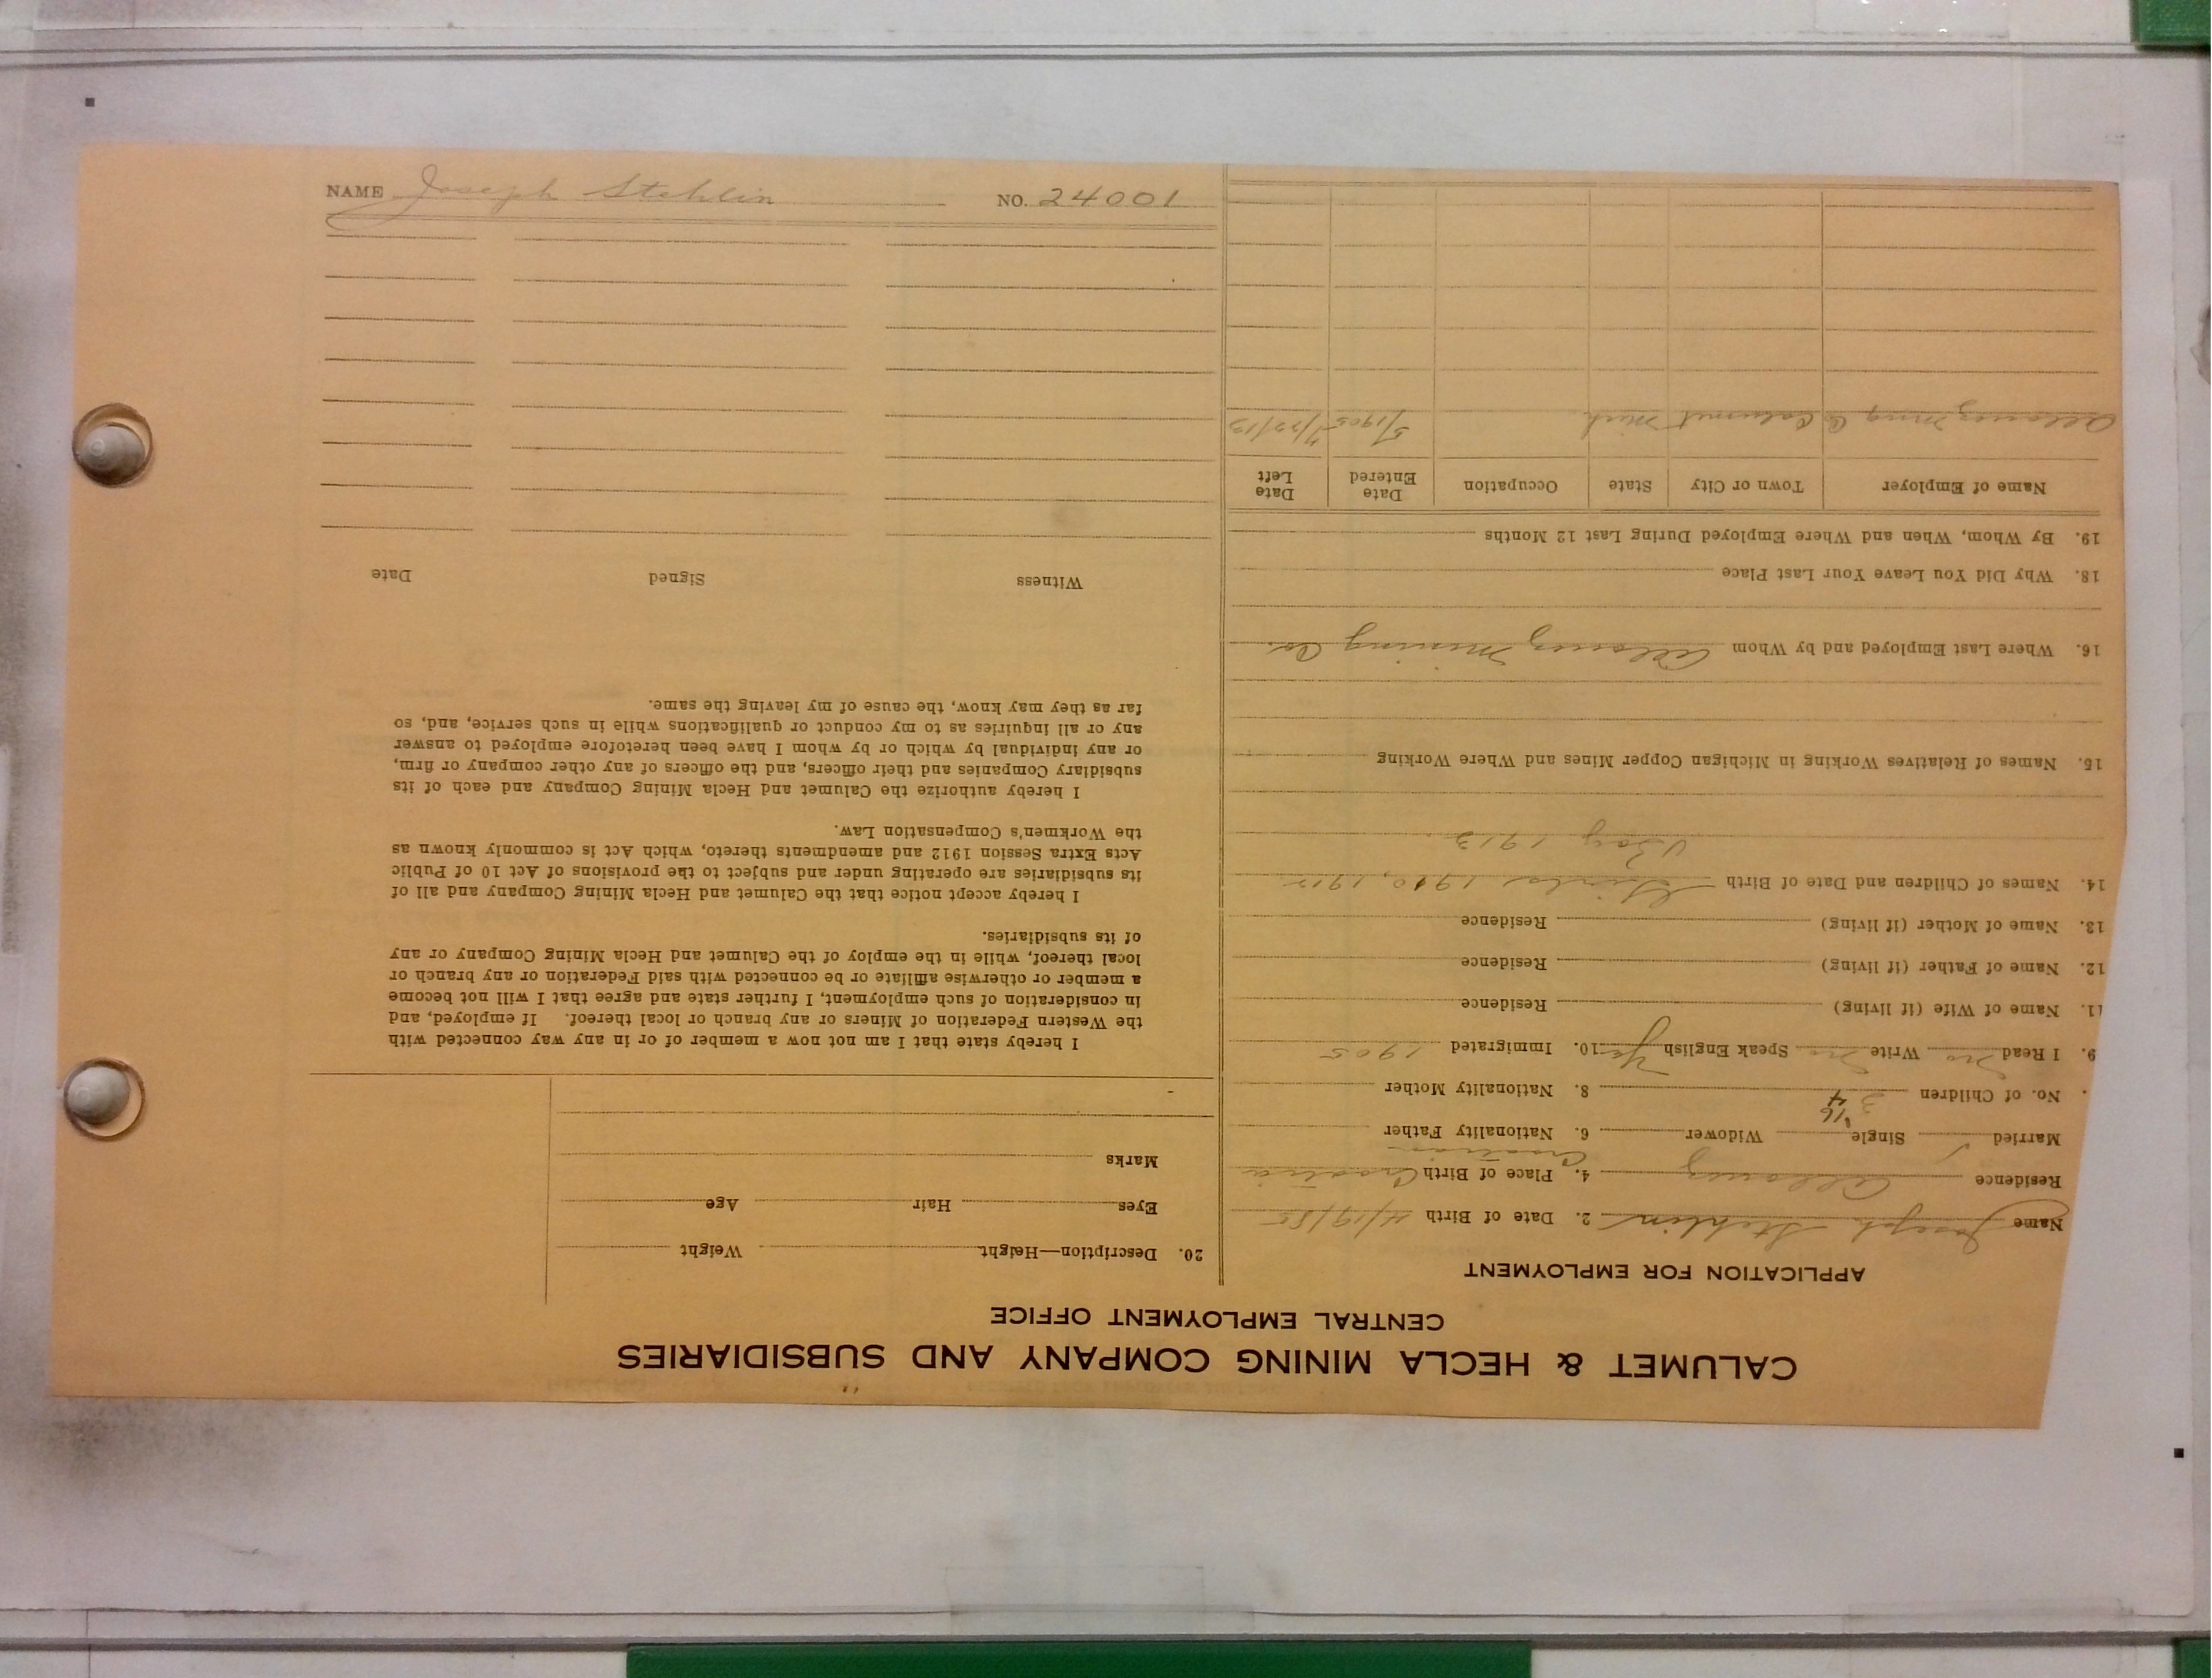 CALUMET & HECLA MINING COMPANY AND SUBSIDIARIES
CENTRAL EMPLOYMENT OFFICE
APPLICATION FOR EMPLOYMENT
Name Joseph Stehlin 2. Date of Birth 4/19/85
Residence Allouez 4. Place of Birth Croatia
Croatian
Married Single Widower 6. Nationality Father
'16
No. of Children 3 4 8. Nationality Mother
9. I Read No Write No Speak English Yes 10. Immigrated 1905
11. Name of Wife (if living) Residence
12. Name of Father (if living) Residence
13. Name of Mother (if living) Residence
14. Names of Children and Date of Birth Girls 1910, 1912
Boy 1913.
15. Names of Relatives Working in Michigan Copper Mines and Where Working
16. Where Last Employed and by Whom Allouez Mining Co.
18. Why Did You Leave Your Last Place
19. By Whom, When and Where Employed During Last 12 Months
Name of Employer Town or City State Occupation Date Entered Date Left
Allouez Mng Co Calumet Mich 5/1905 7/22/13
20. Description—Height Weight
Eyes Hair Age
Marks
I hereby state that I am not now a member of or in any way connected with
the Western Federation of Miners or any branch or local thereof. If employed, and
in consideration of such employment, I further state and agree that I will not become
a member or otherwise affiliate or be connected with said Federation or any branch or
local thereof, while in the employ of the Calumet and Hecla Mining Company or any
of its subsidiaries.
I hereby accept notice that the Calumet and Hecla Mining Company and all of
its subsidiaries are operating under and subject to the provisions of Act 10 of Public
Acts Extra Session 1912 and amendments thereto, which Act is commonly known as
the Workmen's Compensation Law.
I hereby authorize the Calumet and Hecla Mining Company and each of its
subsidiary Companies and their officers, and the officers of any other company or firm,
or any individual by which or by whom I have been heretofore employed to answer
any or all inquiries as to my conduct or qualifications while in such service, and, so
far as they may know, the cause of my leaving the same.
Witness Signed Date
NAME Joseph Stehlin NO. 24001